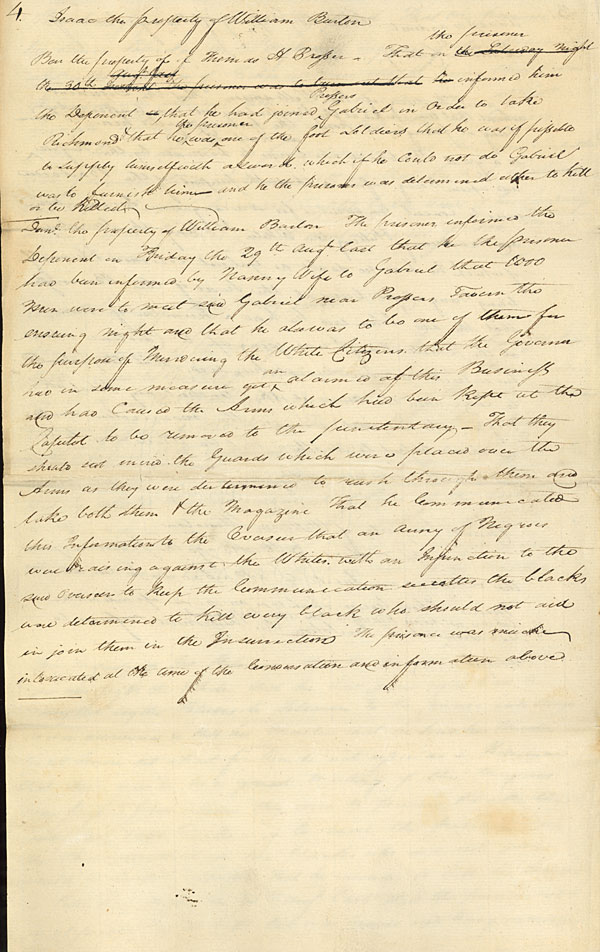 4.
Isaac the property of William Burton
the prisoner
Ben the property of Thomas H Prosser - That on the Saturday Night
the 30th the prisoner was to turn out that he informed him
Prossers
the Deponent that he had joined Gabriel in order to take
the prisoner
Richmond & that he was one of the foot Soldiers, that he was if possible
to supply himself with a sword. which if he could not do Gabriel
was to furnish him and he the prisoner was determined either to kill
or be Killed
Danl. the property of William Burton The prisoner informed the
Deponent on Friday the 29th Augt last that he the prisoner
had been informed by Nanny Wife to Gabriel that 1000
Men were to meet said Gabriel near Prossers Tavern the
ensuing night and that he also was to be one of them for
the purpose of Murdering the White Citizens. that the Governor
an
had in some measure got alarmed of this Business
and had Caused the Arms which had been Kept at the
Capitol to be removed to the penitentiary - That they
should not mind the Guards which were placed over the
Arms as they were determined to rush through them and
take both them & the Magazine That he Communicated
this Information to the Overseer that an army of Negroes
were raising against the Whites. with an Injunction to the
said Overseer to Keep the Communication secret as the blacks
were determined to kill every black who should not aid
in join them in the Insurrection The prisoner was much
intoxicated at the time of the Conversation and information above